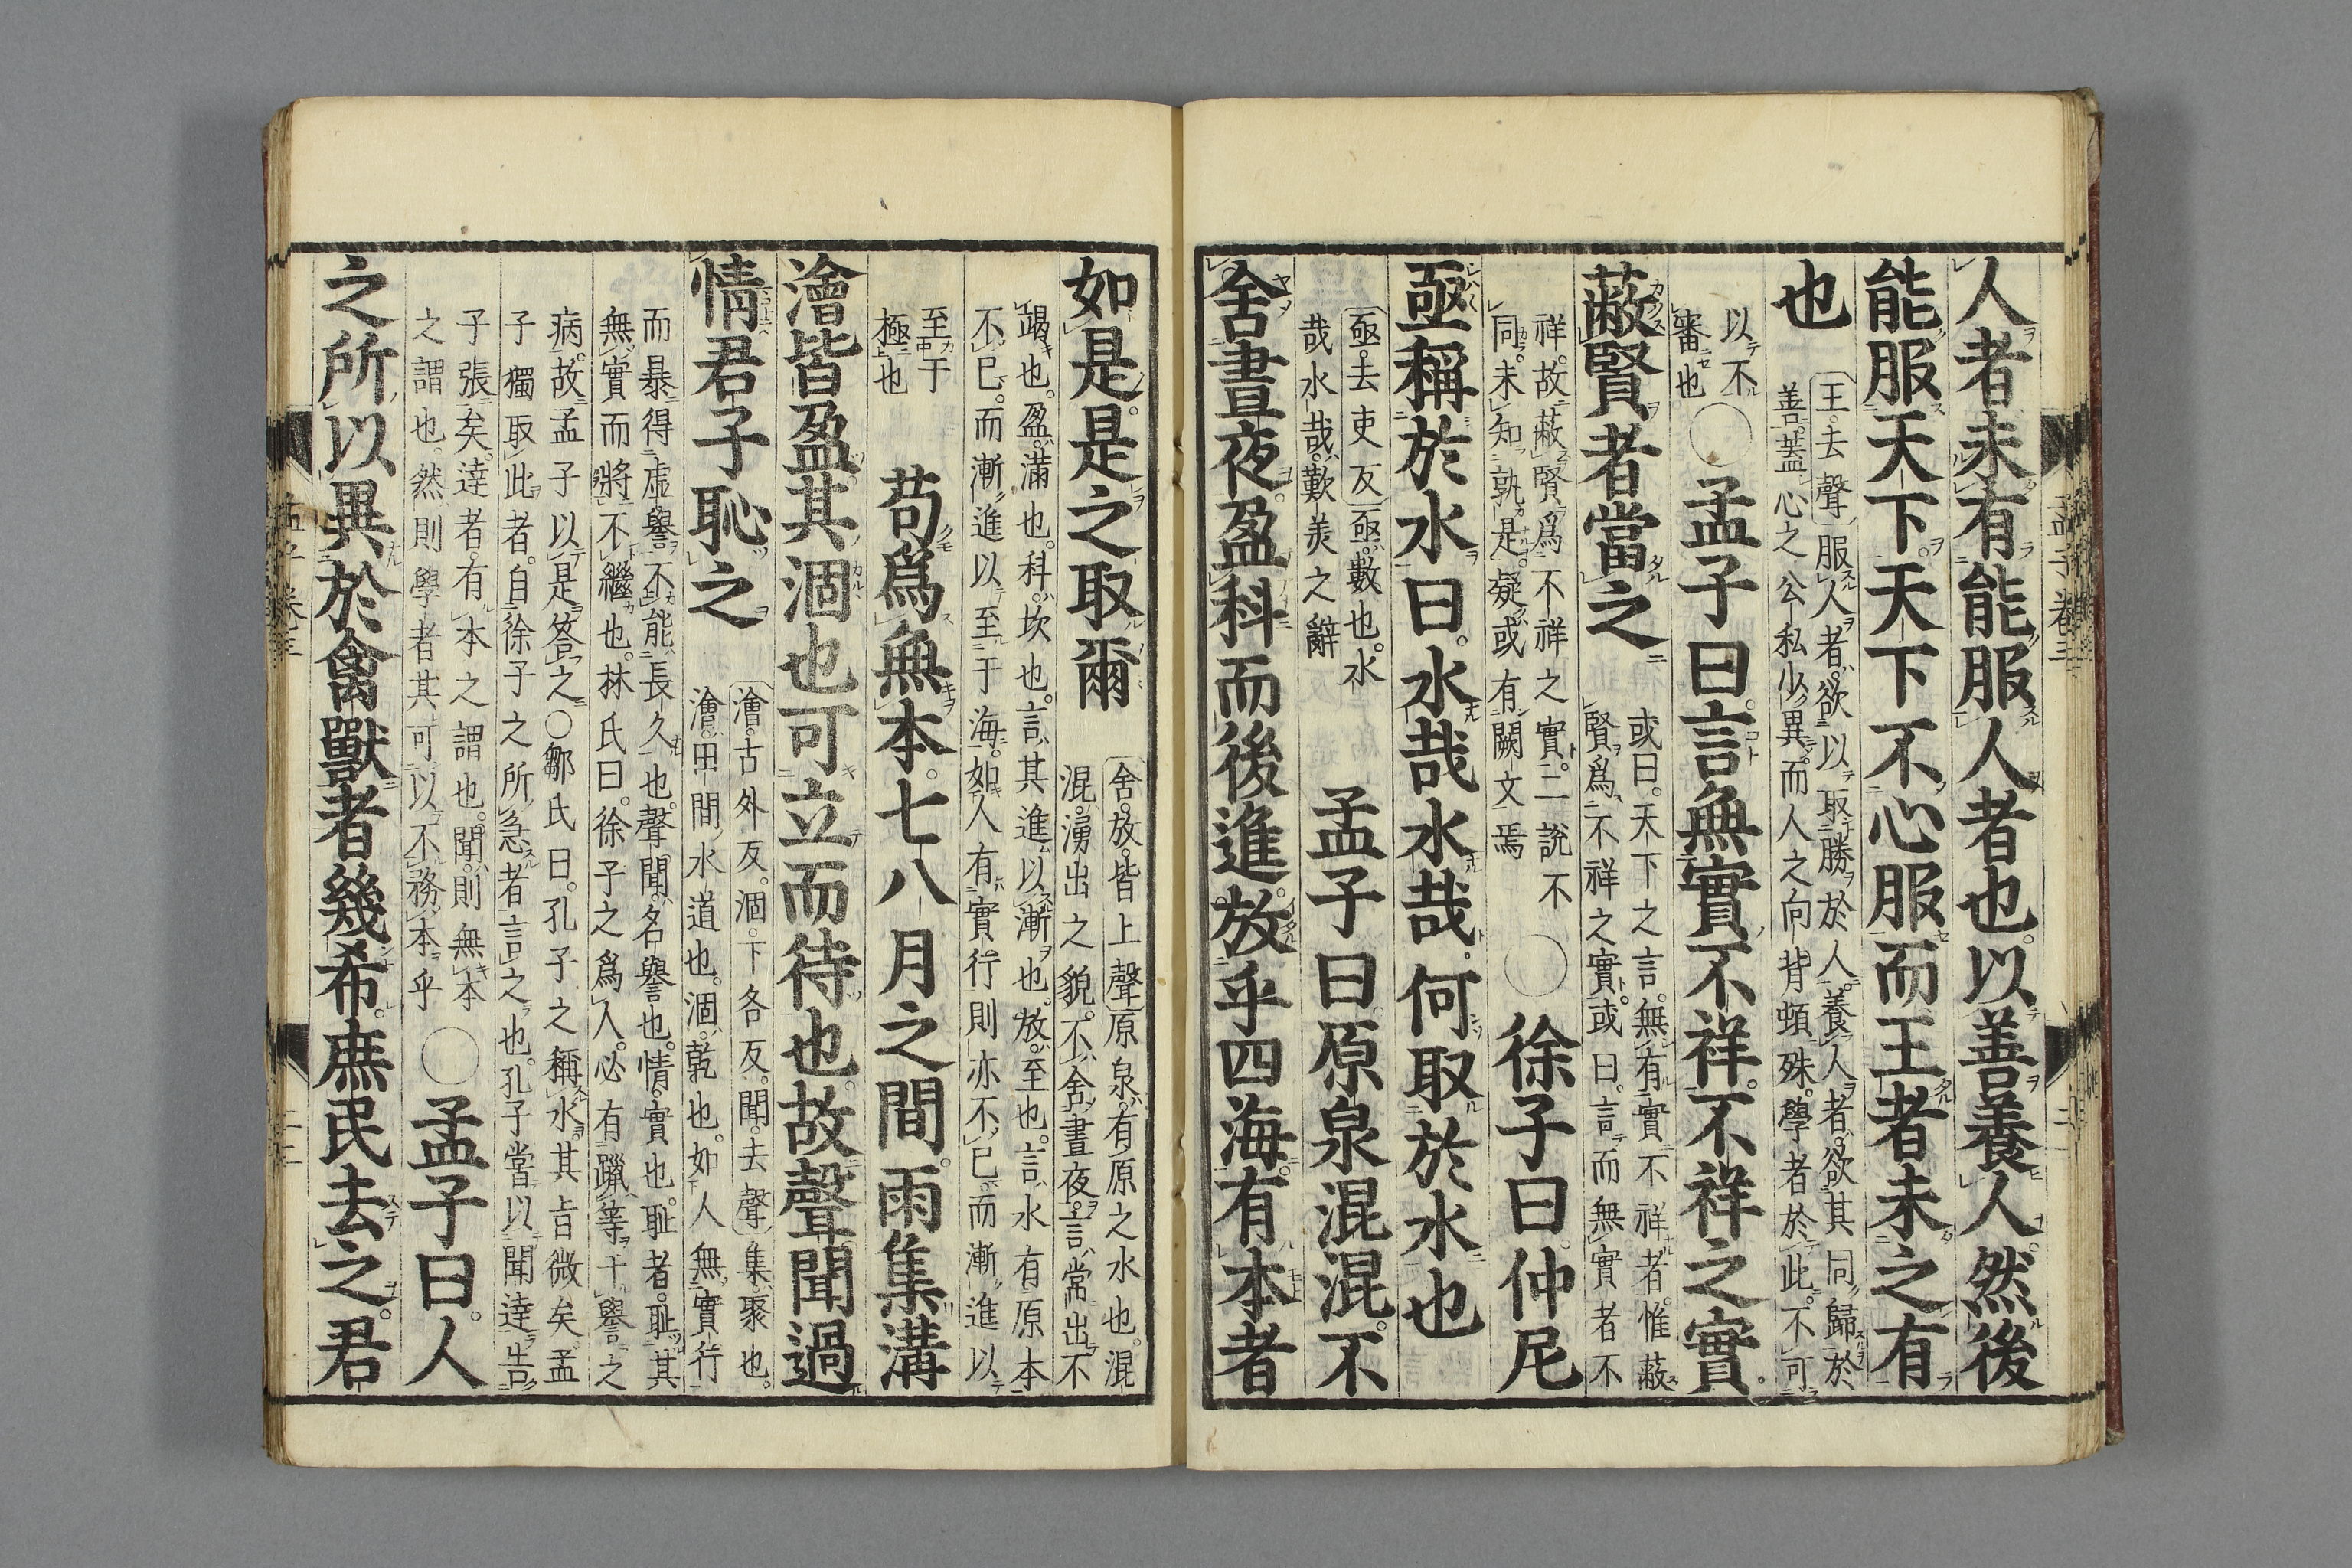 人者未有能服人者也。以善養人。然後
能服天下。天下不心服而王者未之有
也
王。去聲服人者。欲以取勝於人。養人者。欲其同歸於
善。蓋心之公私少異。而人之向背頓殊。學者於此。不可
以不
審也
○孟子曰。言無實不祥。不祥之實。
蔽賢者當之
或曰。天下之言。無有實不祥者。惟蔽
賢爲不祥之實。或曰。言而無實者不
祥。故蔽賢爲不祥之實。二說不
同。未知孰是。疑或有闕文焉
○徐子曰。仲尼
亟稱於水曰。水哉水哉。何取於水也
亟。去吏反亟。數也。水
哉水哉。歎美之辭
孟子曰。原泉混混。不
舍晝夜。盈科而後進。放乎四海。有本者
如是。是之取爾
舍。放。皆上聲原泉。有原之水也。混
混。湧出之貌。不舍晝夜。言常出不
竭也。盈。滿也。科。坎也。言其進以漸也。放。至也。言水有原本
不已。而漸進以至于海。如人有實行則亦不已。而漸進以
至于
極也
苟爲無本。七八月之間。雨集。溝
澮皆盈。其涸也可立而待也。故聲聞過
情君子恥之
澮。古外反。涸。下各反。聞。去聲集。聚也。
澮。田間水道也。涸。乾也。如人無實行
而暴得虛譽。不能長久也。聲聞。名譽也。情。實也。恥者。恥其
無實而將不繼也。林氏曰。徐子之爲人。必有躐等干譽之
病。故孟子以是答之。○鄒氏曰。孔子之稱水。其旨微矣。孟
子獨取此者。自徐子之所急者言之也。孔子嘗以聞達告
子張矣。達者。有本之謂也。聞則無本
之謂也。然則學者其可以不務本乎
○孟子曰。人
之所以異於禽獸者幾希。庶民去之。君
孟子卷三
孟子卷三